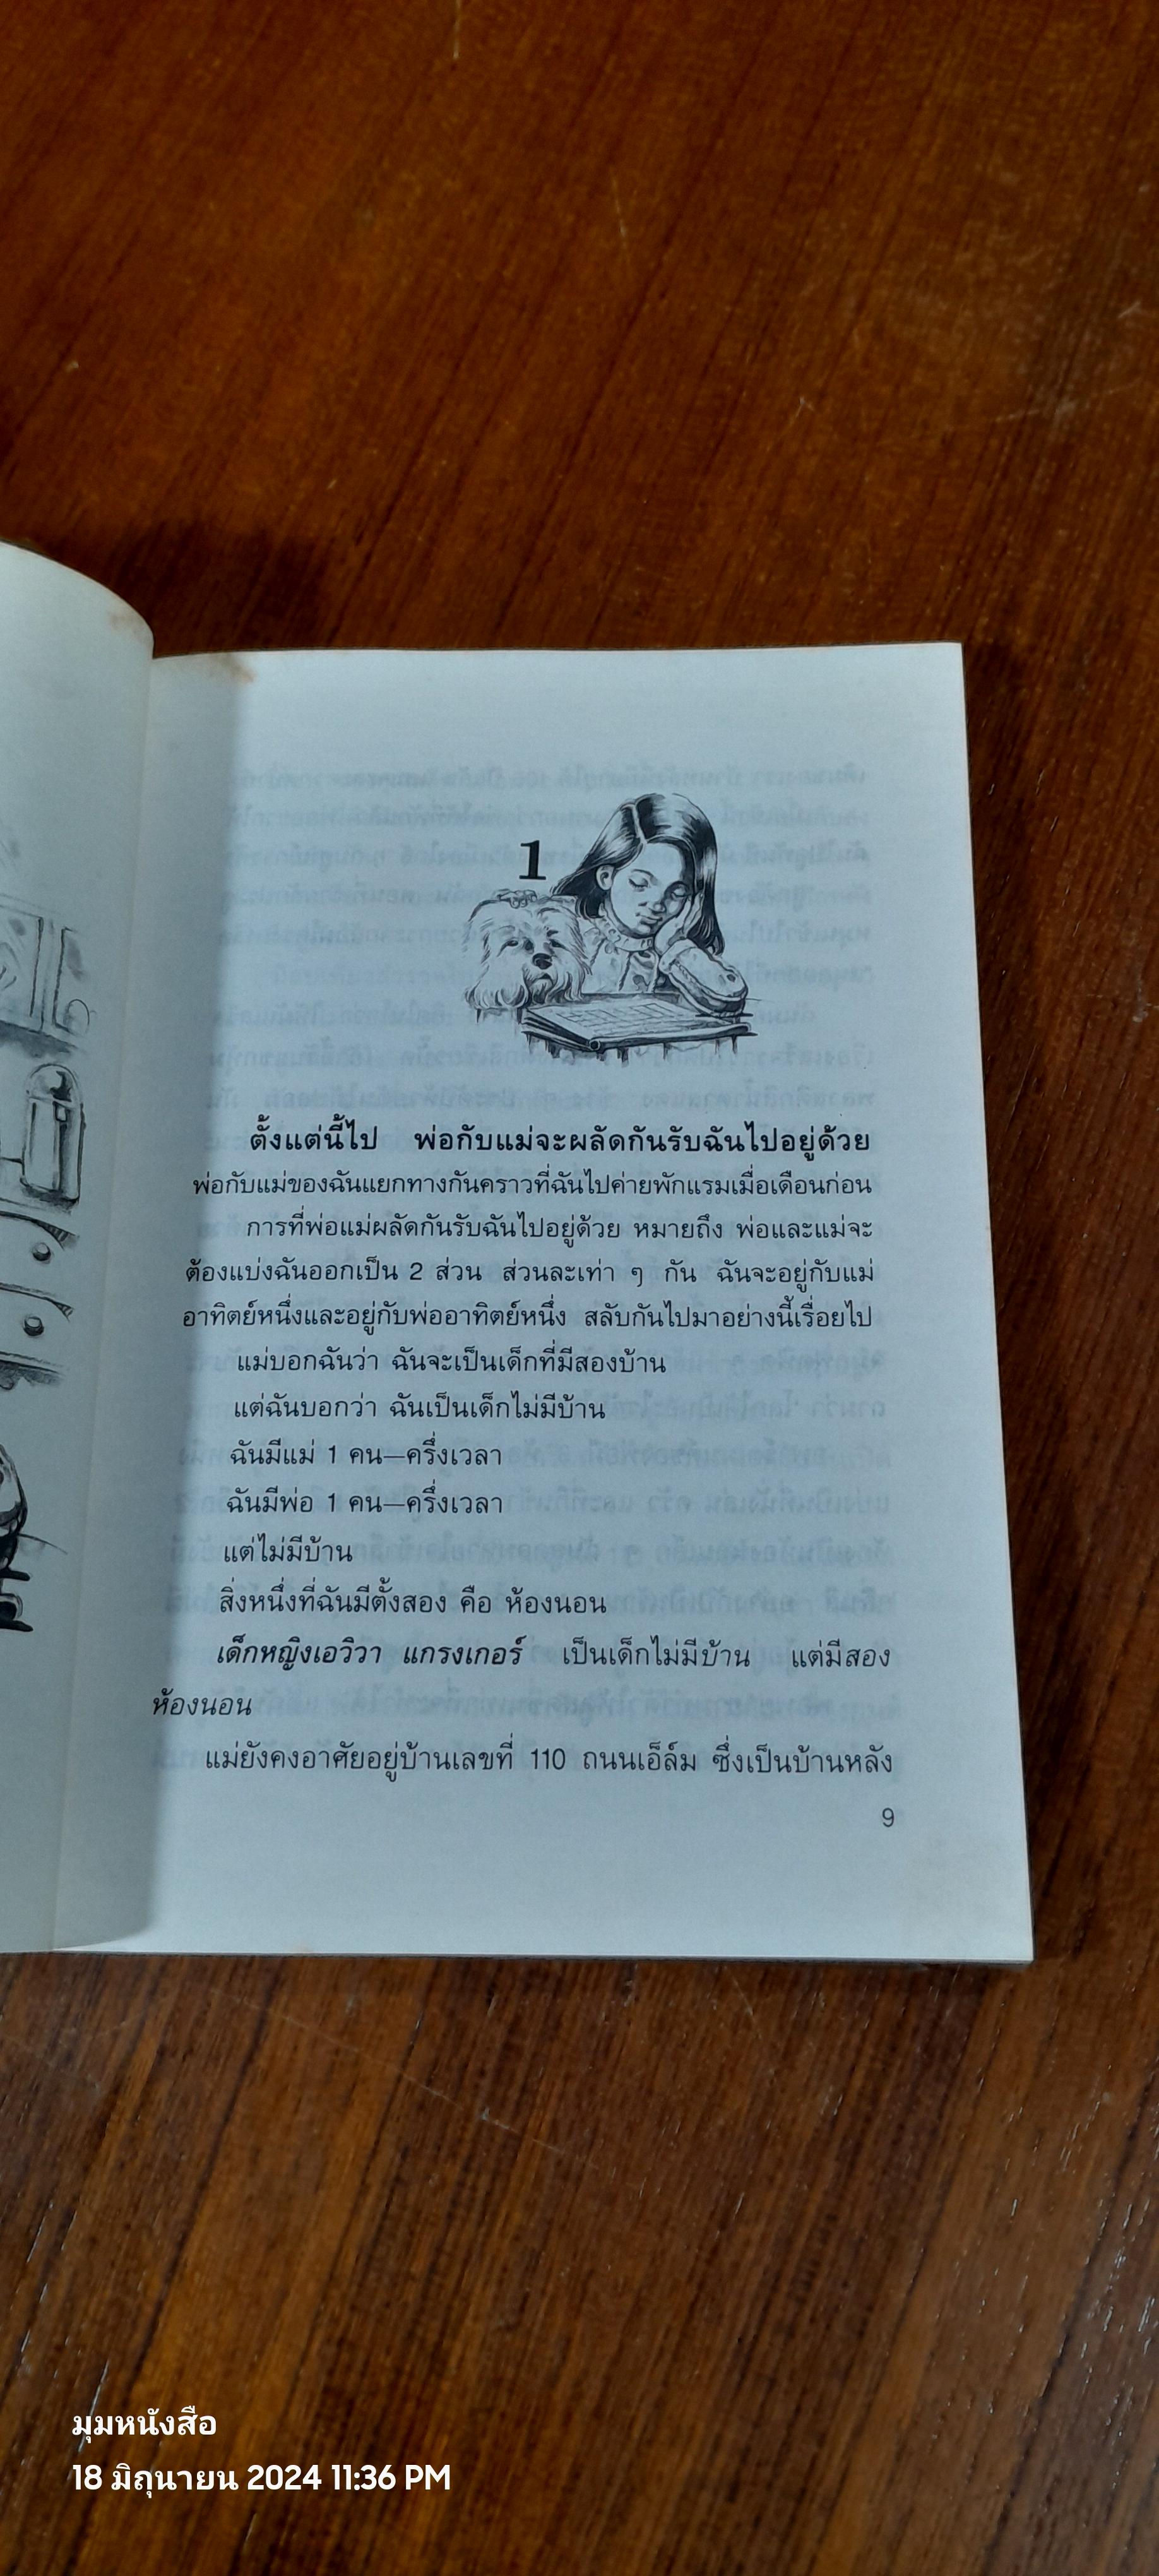 1
ตั้งแต่นี้ไป พ่อกับแม่จะผลัดกันรับฉันไปอยู่ด้วย
พ่อกับแม่ของฉันแยกทางกันคราวที่ฉันไปค่ายพักแรมเมื่อเดือนก่อน
การที่พ่อแม่ผลัดกันรับฉันไปอยู่ด้วย หมายถึง พ่อและแม่จะ
ต้องแบ่งฉันออกเป็น 2 ส่วน ส่วนละเท่า ๆ กัน ฉันจะอยู่กับแม่
อาทิตย์หนึ่งและอยู่กับพ่ออาทิตย์หนึ่ง สลับกันไปมาอย่างนี้เรื่อยไป
แม่บอกฉันว่า ฉันจะเป็นเด็กที่มีสองบ้าน
แต่ฉันบอกว่า ฉันเป็นเด็กไม่มีบ้าน
ฉันมีแม่ 1 คน—ครึ่งเวลา
ฉันมีพ่อ 1 คน—ครึ่งเวลา
แต่ไม่มีบ้าน
สิ่งหนึ่งที่ฉันมีตั้งสอง คือ ห้องนอน
เด็กหญิงเอวิวา แกรงเกอร์ เป็นเด็กไม่มีบ้าน แต่มีสอง
ห้องนอน
แม่ยังคงอาศัยอยู่บ้านเลขที่ 110 ถนนเอ็ล์ม ซึ่งเป็นบ้านหลัง
9
มุมหนังสือ
18 มิถุนายน 2024 11:36 PM